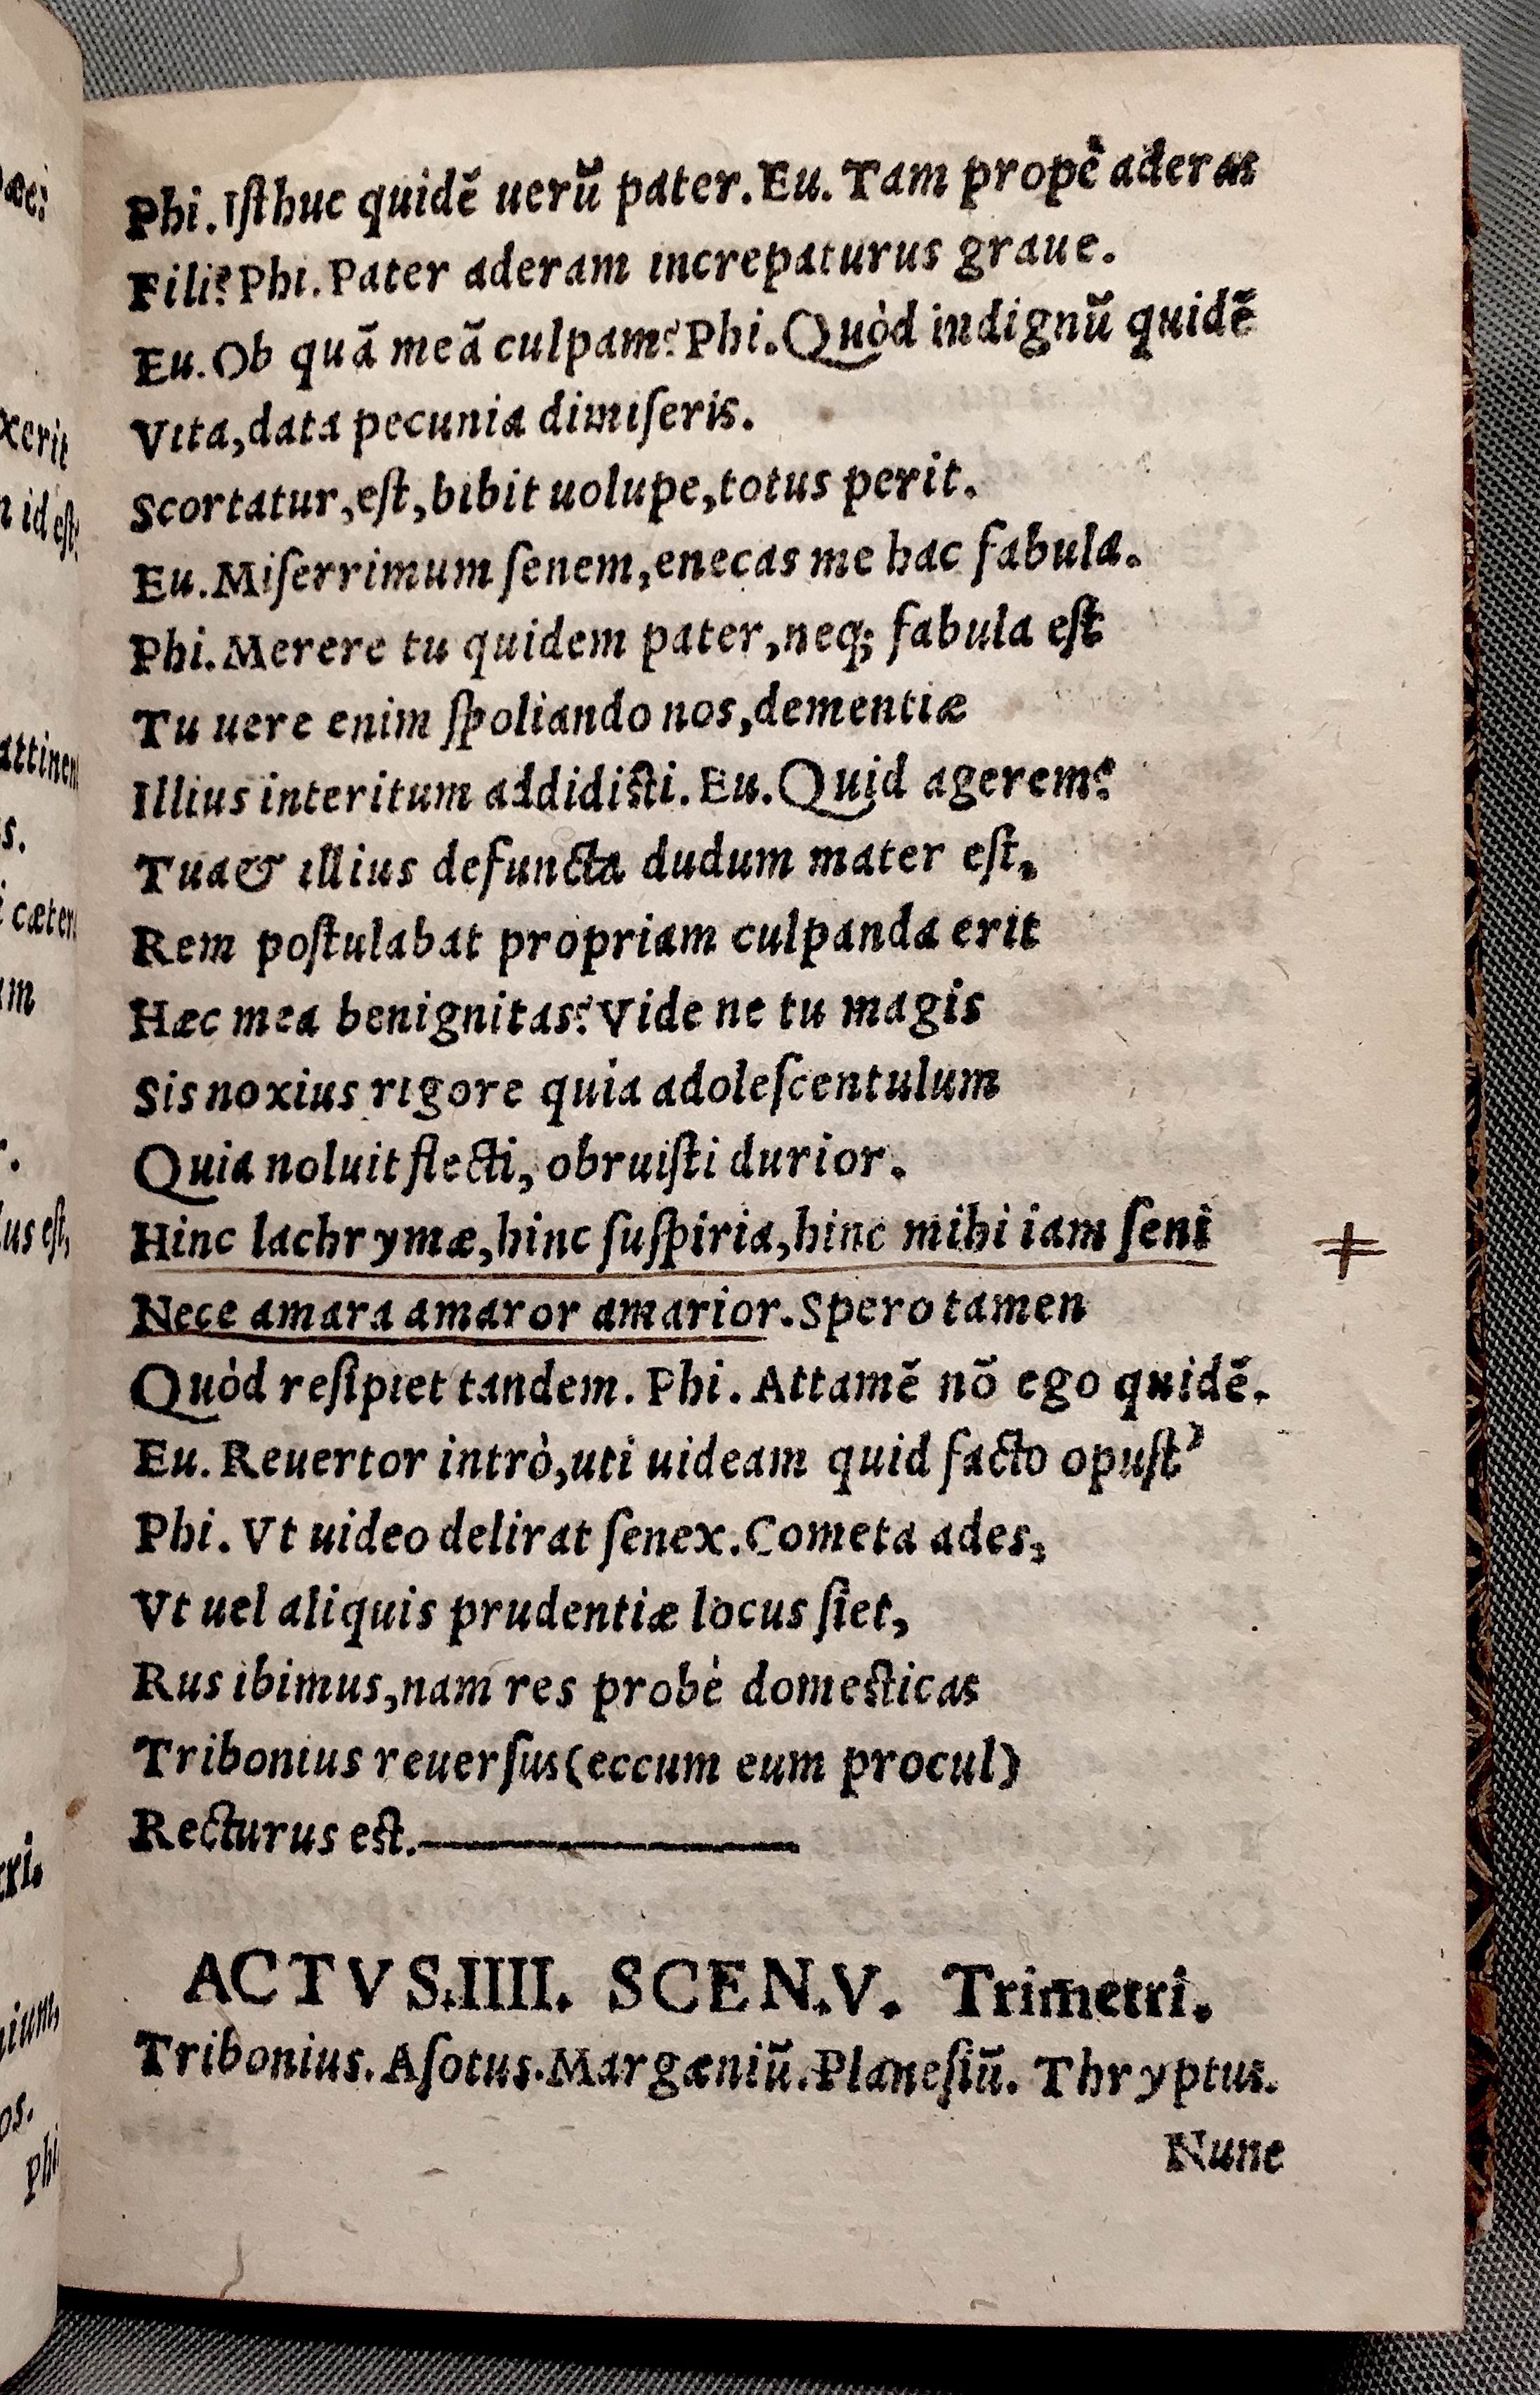 Phi. Iſthuc quidẽ uerũ pater. Eu. Tam propè aderas
Fili? Phi. Pater aderam increpaturus graue.
Eu. Ob quã meã culpam? Phi. Quòd indignũ quidẽ
Vita, data pecunia dimiſeris.
Scortatur, eſt, bibit uolupe, totus perit.
Eu. Miſerrimum ſenem, enecas me hac fabula.
Phi. Merere tu quidem pater, neq; fabula eſt
Tu uere enim ſpoliando nos, dementiæ
Illius interitum addidiſti. Eu. Quid agerem?
Tua & illius defuncta dudum mater eſt,
Rem poſtulabat propriam culpanda erit
Hæc mea benignitas? Vide ne tu magis
Sis noxius rigore quia adoleſcentulum
Quia noluit flecti, obruiſti durior.
Hinc lachrymæ, hinc ſuſpiria, hinc mihi iam ſeni
Nece amara amaror amarior. Spero tamen
Quòd reſipiet tandem. Phi. Attamẽ nõ ego quidẽ.
Eu. Reuertor intrò, uti uideam quid facto opuſt’
Phi. Vt uideo delirat ſenex. Cometa ades,
Vt uel aliquis prudentiæ locus ſiet,
Rus ibimus, nam res probè domeſticas
Tribonius reuerſus (eccum eum procul)
Recturus eſt.
ACTVS. IIII. SCEN. V. Trimetri.
Tribonius. Aſotus. Margæniũ. Planeſiũ. Thryptus.
Nunc